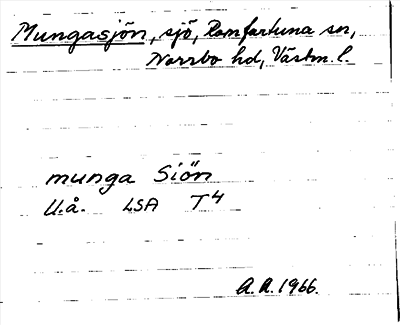 Mungasjön, sjö, Romfartuna sn,
Norrbo hd, Västm. l.
munga Siön
U.å. LSA T4
A.R. 1966.